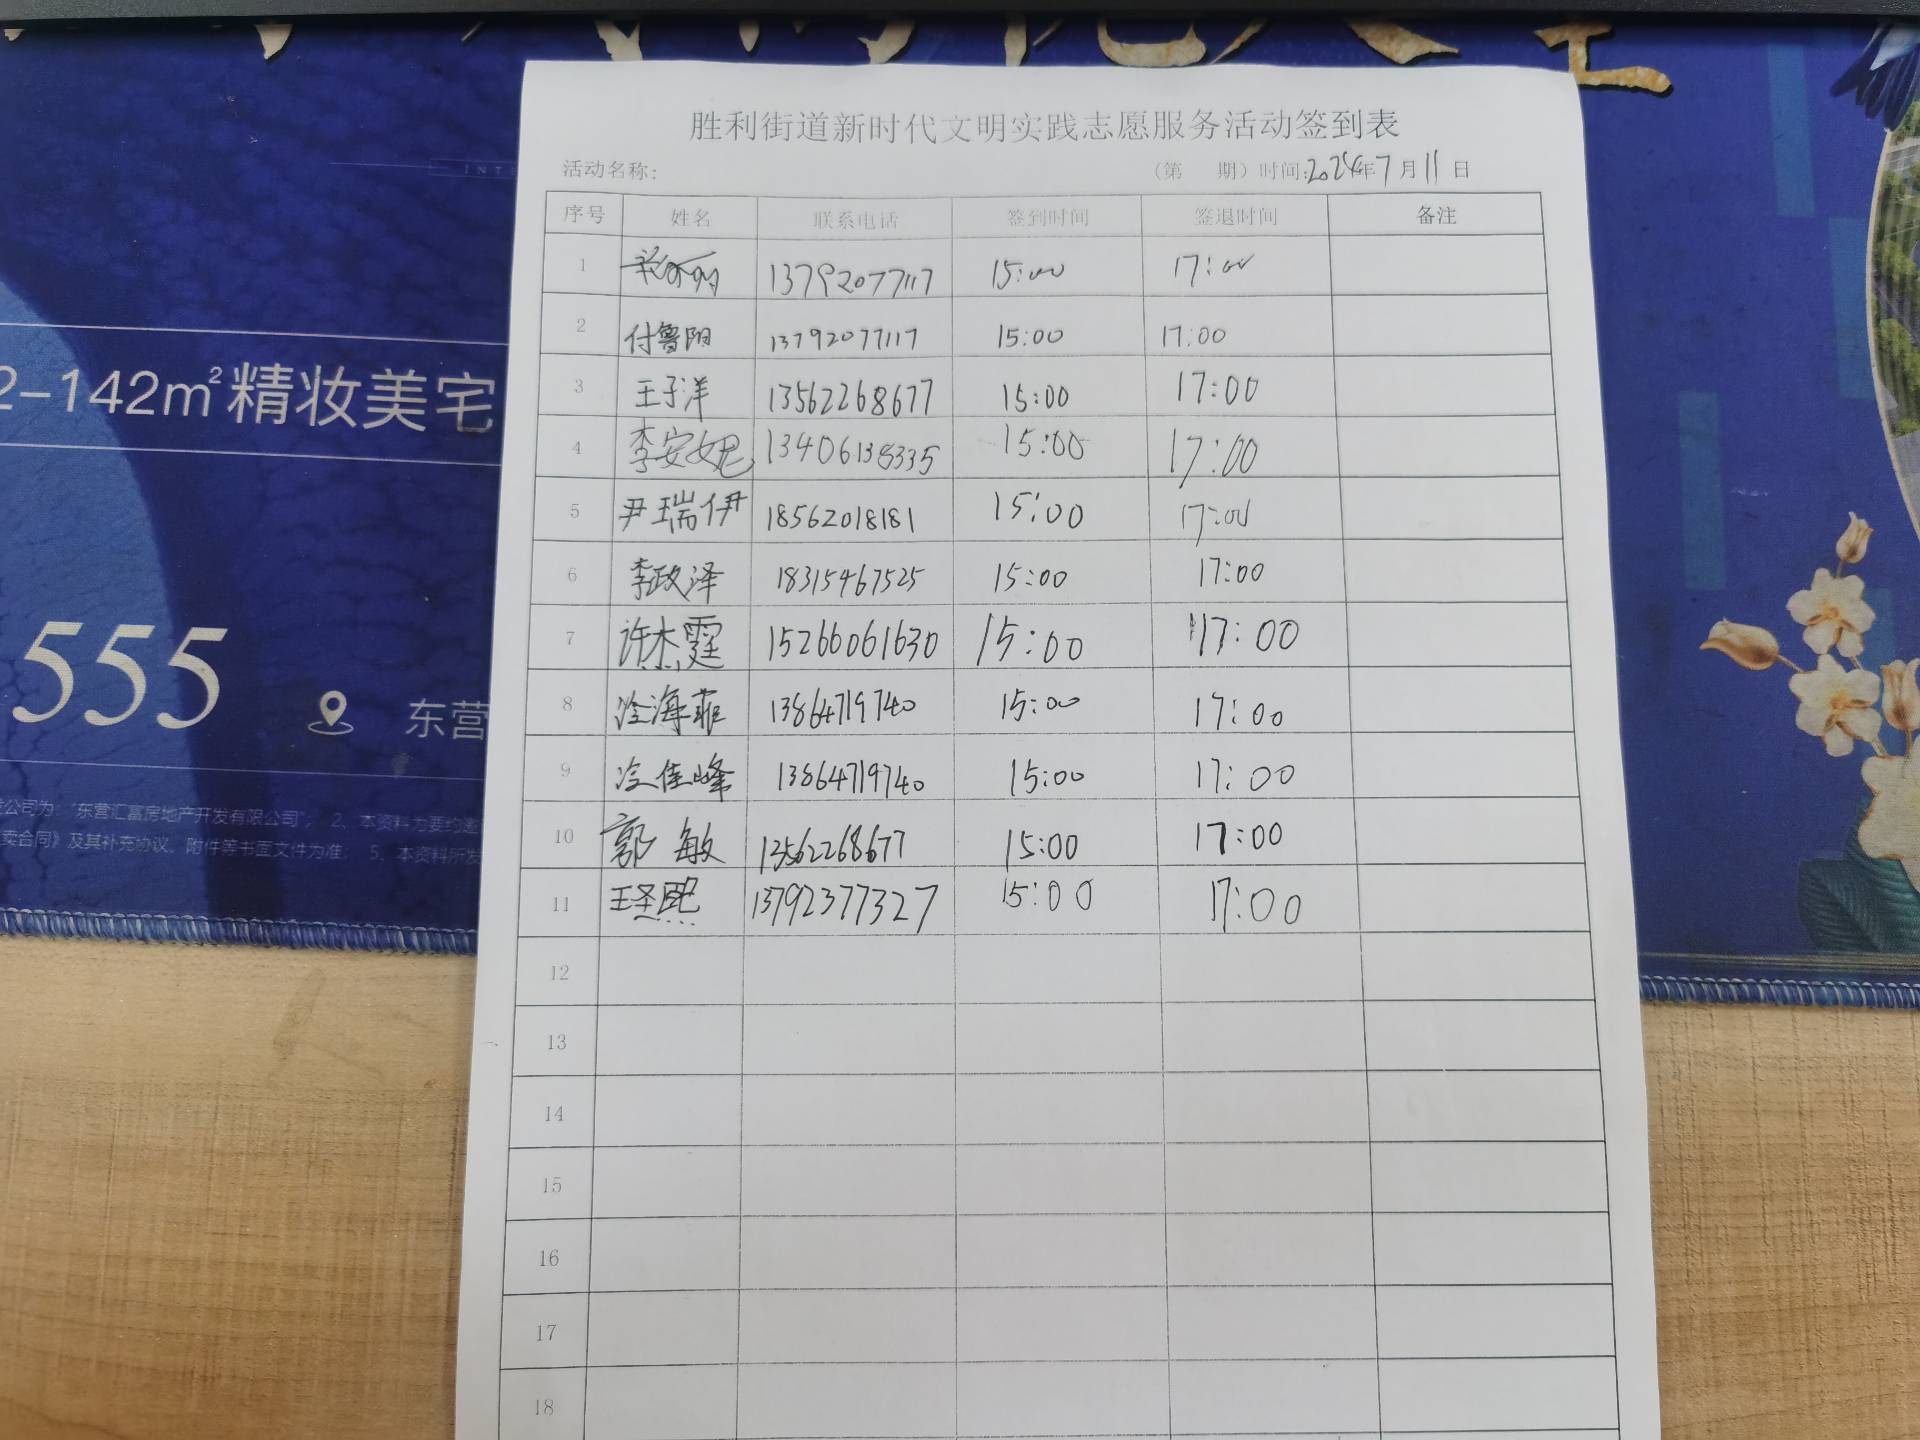 INTE
2-142m²精妆美宅
555
东营
公司为:“东营汇富房地产开发有限公司”; 2、本资料为要约邀
卖合同》及其补充协议、附件等书面文件为准; 5、本资料所发
胜利街道新时代文明实践志愿服务活动签到表
活动名称: (第 期) 时间:2024年7月11日
序号 姓名 联系电话 签到时间 签退时间 备注
1 13792077117 15:00 17:00
2 付鲁阳 13792077117 15:00 17:00
3 王子洋 13562268677 15:00 17:00
4 李安妮 13406138335 15:00 17:00
5 尹瑞伊 18562018181 15:00 17:00
6 李政泽 18315467525 15:00 17:00
7 许杰霆 15266061630 15:00 17:00
8 冷海菲 13864719740 15:00 17:00
9 冷佳峰 13864719740 15:00 17:00
10 郭敏 13562268677 15:00 17:00
11 王圣熙 13792377327 15:00 17:00
12
13
14
15
16
17
18